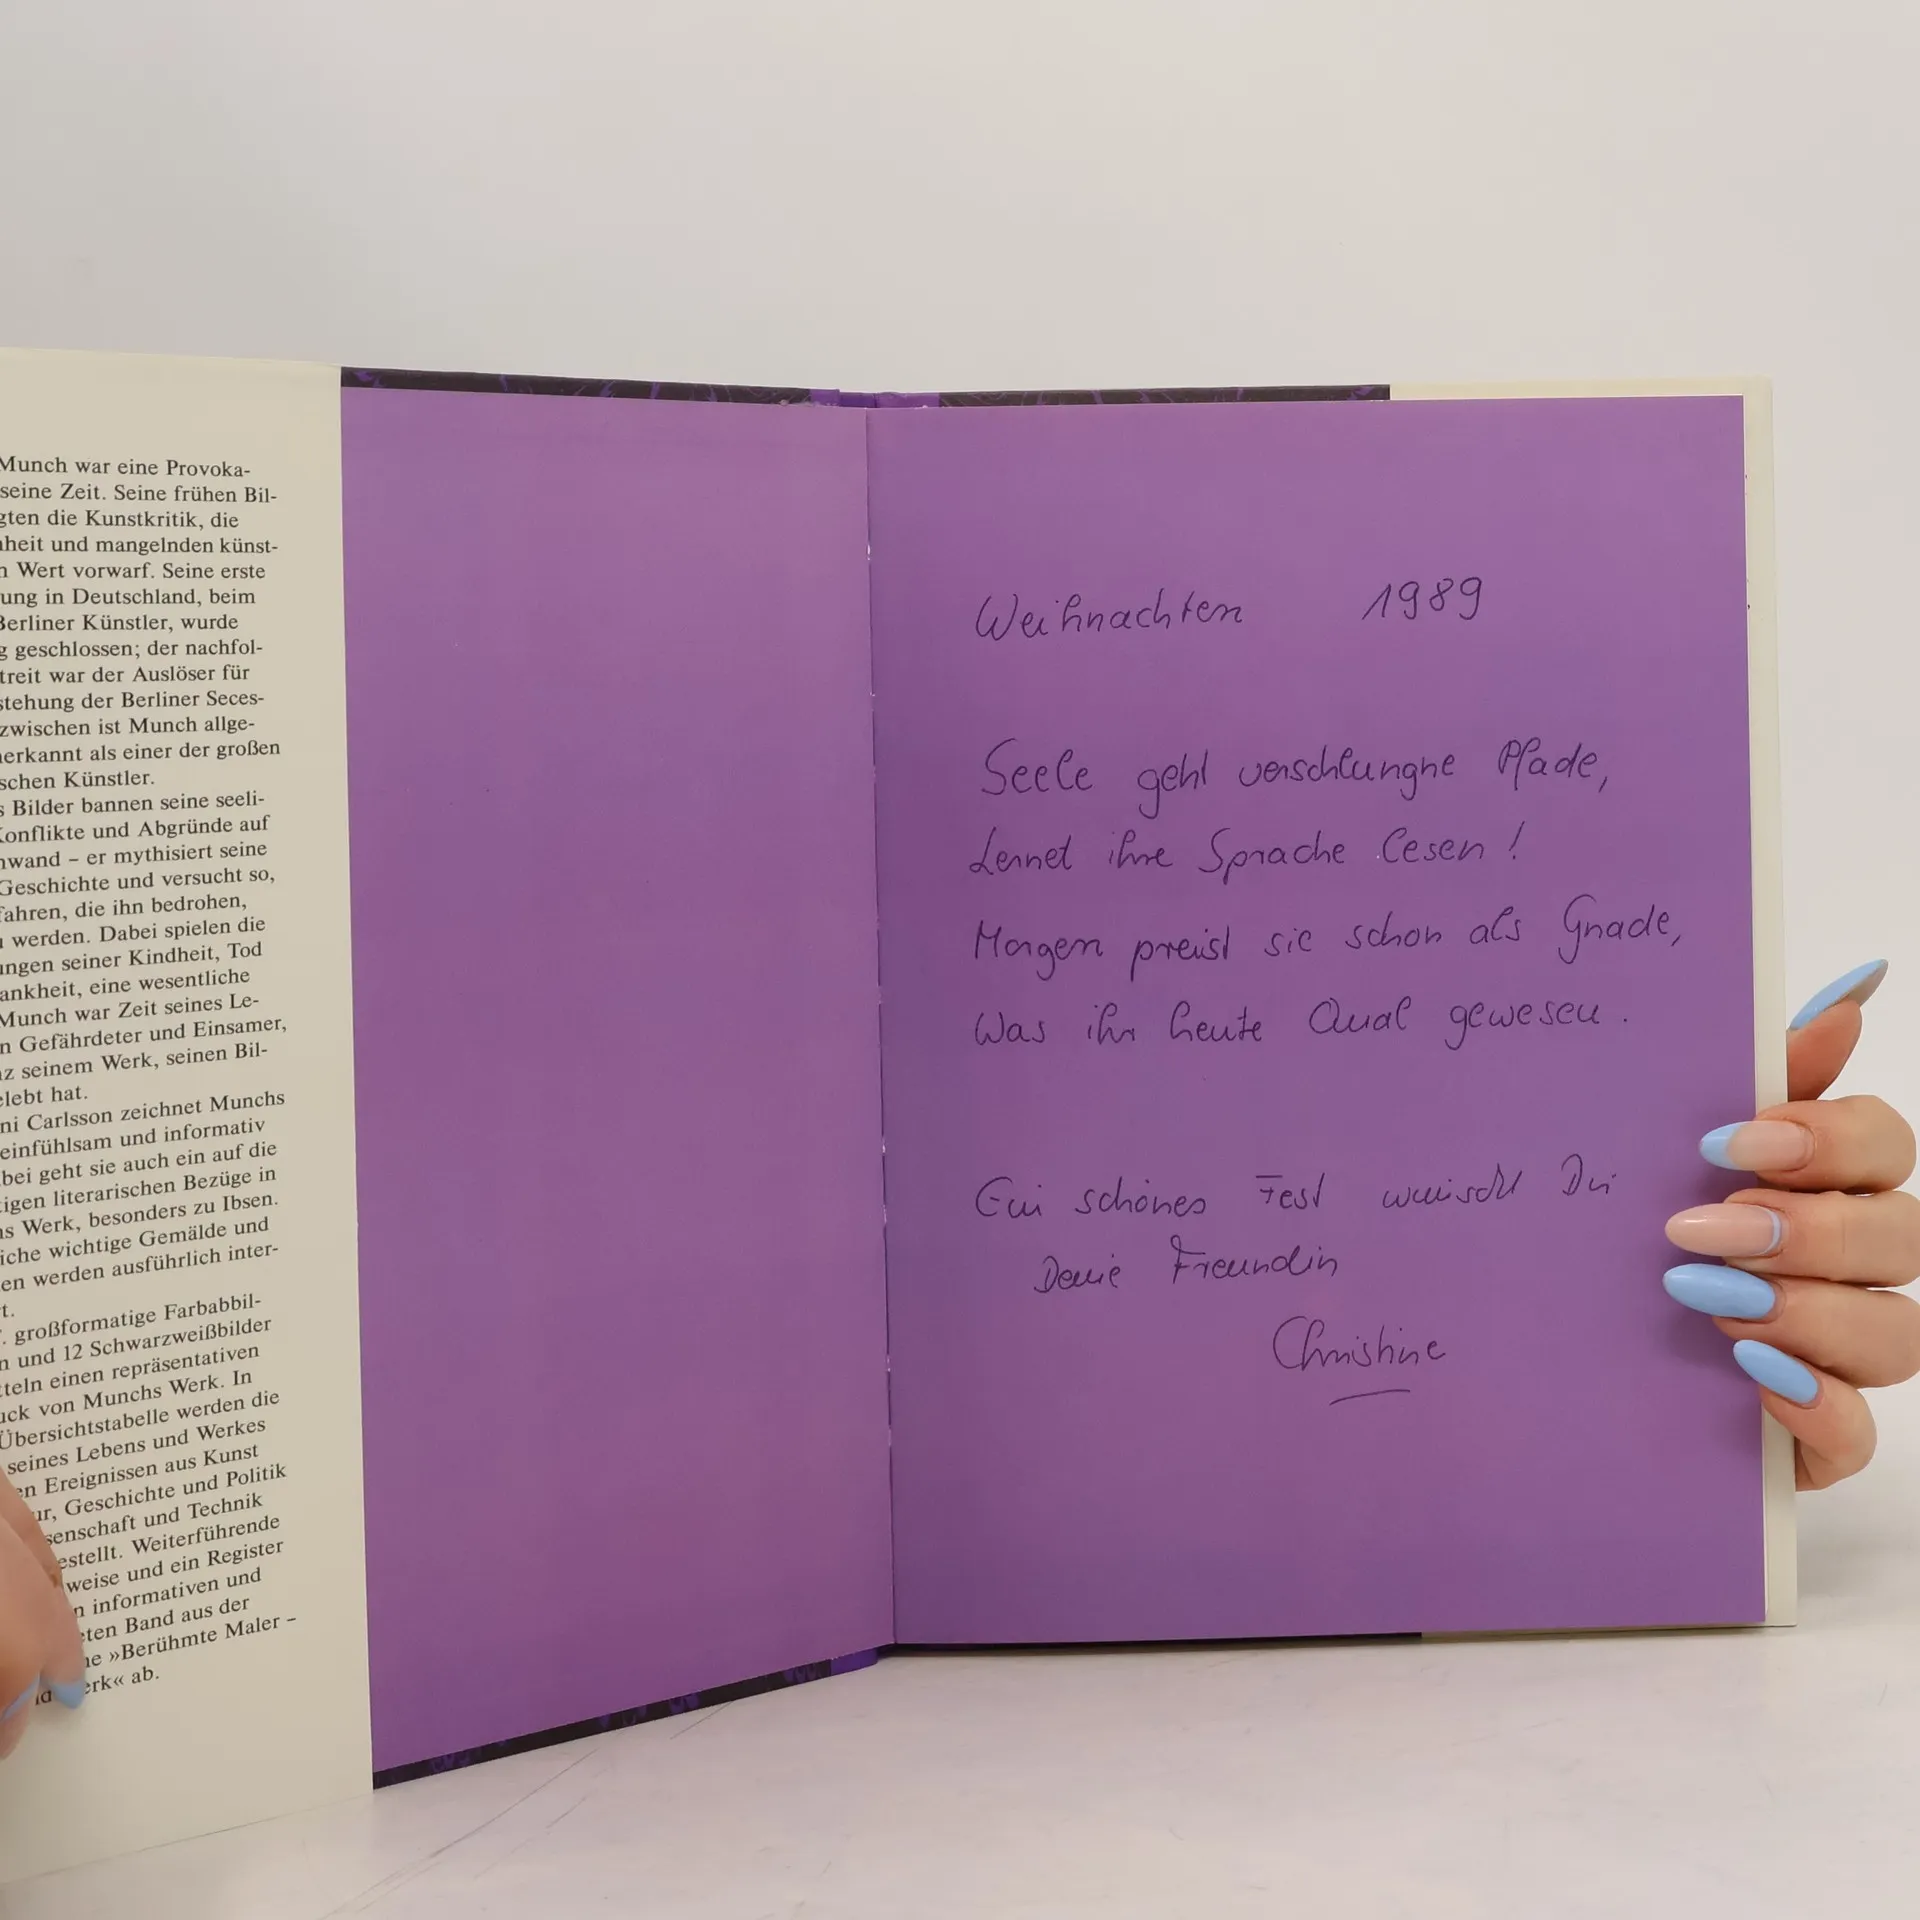 Munch war eine Provoka-
seine Zeit. Seine frühen Bil-
gten die Kunstkritik, die
heit und mangelnden künst-
n Wert vorwarf. Seine erste
ung in Deutschland, beim
Berliner Künstler, wurde
g geschlossen; der nachfol-
treit war der Auslöser für
stehung der Berliner Seces-
zwischen ist Munch allge-
erkannt als einer der großen
schen Künstler.
s Bilder bannen seine seeli-
Konflikte und Abgründe auf
nwand – er mythisiert seine
Geschichte und versucht so,
fahren, die ihn bedrohen,
u werden. Dabei spielen die
ungen seiner Kindheit, Tod
ankheit, eine wesentliche
Munch war Zeit seines Le-
n Gefährdeter und Einsamer,
nz seinem Werk, seinen Bil-
elebt hat.
ni Carlsson zeichnet Munchs
einfühlsam und informativ
bei geht sie auch ein auf die
tigen literarischen Bezüge in
s Werk, besonders zu Ibsen.
iche wichtige Gemälde und
en werden ausführlich inter-
t.
. großformatige Farbabbil-
n und 12 Schwarzweißbilder
tteln einen repräsentativen
uck von Munchs Werk. In
Übersichtstabelle werden die
seines Lebens und Werkes
en Ereignissen aus Kunst
ur, Geschichte und Politik
senschaft und Technik
estellt. Weiterführende
weise und ein Register
n informativen und
ten Band aus der
he »Berühmte Maler –
erk« ab.
Weihnachten 1989
Seele geht verschlungne Pfade,
Lernet ihre Sprache lesen!
Morgen preist sie schon als Gnade,
Was ihr heute Qual gewesen.
Ein schönes Fest wünscht Dir
Deine Freundin
Christine